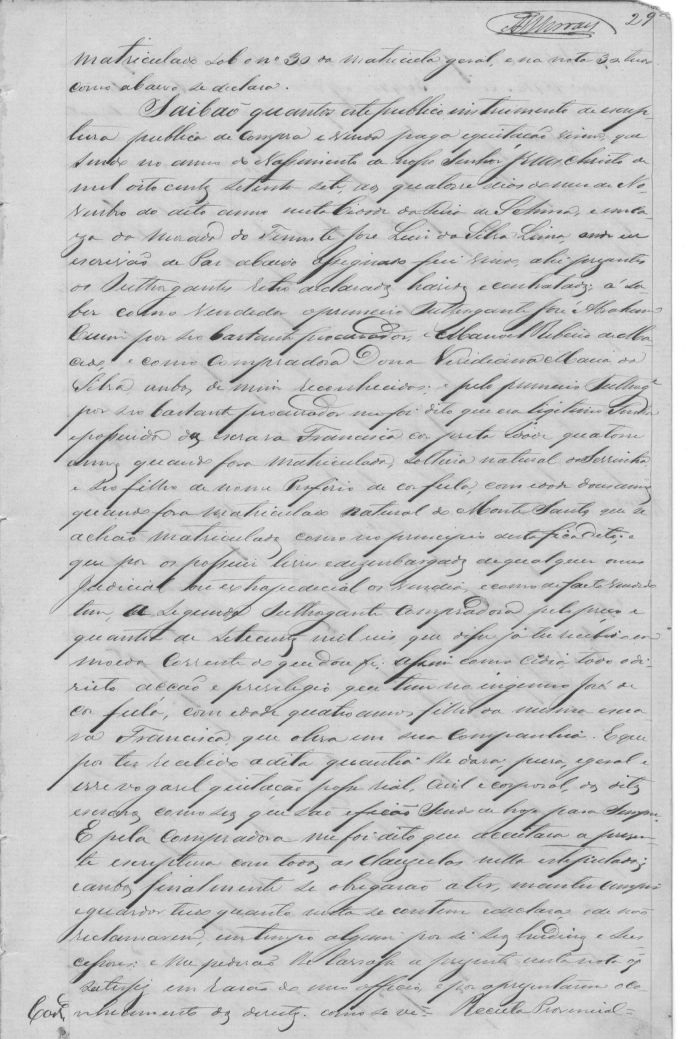 29
matriculado sob o nº 30 da matricula geral, e na nota 3
como abaixo se declara.
Saibaõ quantos este publico instrumento de escrip
tura publica de compra e venda paga e quitação virem, que
sendo no anno do Nascimento de nosso Senhor Jesus Christo de
mil oito centos setenta sete, aos quatorse dias do mez de No
vembro do dito anno nesta Cidade da Feira de Santanna, e em ca
za da morada do Tenente José Luis da Silva Lima onde eu
escrivão de Paz abaixo assignado fui vindo, ahi prezentes
os Outhorgantes retro declarados havidos e contratados; a sa
ber como vendedor o primeiro Outhorgante José Abraham
por seo bastante procurador, Manoel Ribeiro de Ma
cedo, e como Compradora Dona Veridiana Maria da
Silva, ambos de mim reconhecidos; e pelo primeiro Outhorgte
por seo bastante procurador me foi dito que era legitimo Senhor
e possuidor da escrava Francisca cor preta idade quatorse
annos quando fora matriculada, solteira natural da Serrinha
e seo filho de nome Porfirio de cor fula, com idade dous annos
quando fora matriculado natural de Monte Santo, que se
achão matriculados como no principio desta fica dito; e
que por os possuir livres e dezembargados de qualquer onus
Judicial ou extrajudicial os vendia, e como de facto vendido
tem, a Segunda Outhorgante Compradora pelo preço e
quantia de Setecentos mil reis que disse já ter recebido em
moeda corrente do que dou fé: assim como cedia todo o di
rieto acção e previlegio que tem no ingenuo José de
cor fula, com idade quatro annos, filho da mesma escra
va Francisca, que leva em sua Companhia. E que
por ter recebido a dita quantia lhe dava, pura, geral e
irrevogavel quitação posse real, civil e corporal, dos ditos
escravos, como seos que são e ficão sendo de hoje para sempre.
E pela Compradora me foi dito que acceitava a presen
te escriptura com todas as Clauzulas nella estipuladas;
e ambos finalmente se obrigarão a ter, manter cumprir
e guardar tudo quanto nesta se contem e declara e de não
reclamarem, em tempo algum por si seos herdeiros e suc
cessores: e me pedirão lhe lavrasse a prezente nesta nota que
satisfiz em razão de meo officio, e por aprezentarem o co
nhecimento dos direitos como se ve = Receita Provincial =